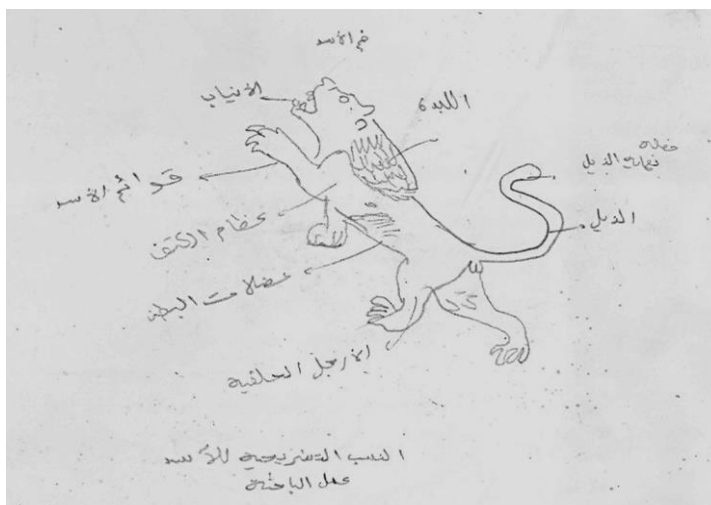 فم الاسد
الانياب
اللبدة
خصلة
نهاية الذيل
قوائم الاسد
الذيل
عظام الكتف
عضلات البطن
الارجل الخلفية
النسب التشريحية للأسد
عمل الباحثة